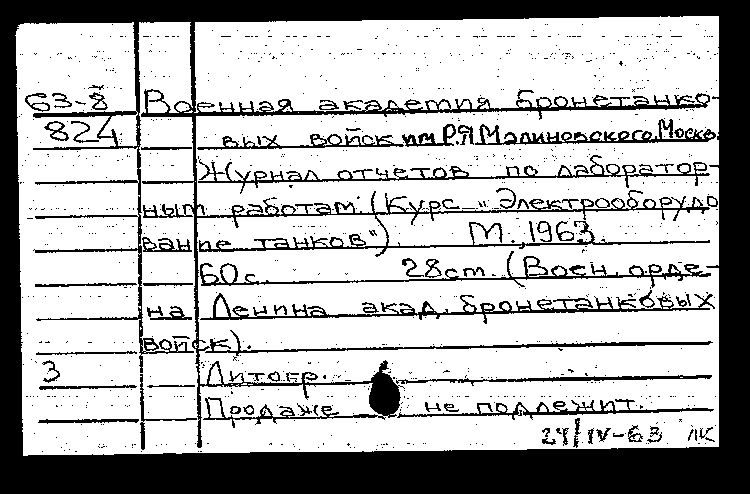 63-8 Военная академия бронетанко-
824 вых войск им. Р.Я. Малиновского. Москва.
Журнал отчетов по лаборатор-
ным работам. (Курс „Электрооборудо
вание танков"). М., 1963.
60 с. 28 см. (Воен. орде-
на Ленина акад. бронетанковых
войск).
3 Литогр.
Продаже не подлежит.
24/IV-63 ЛК